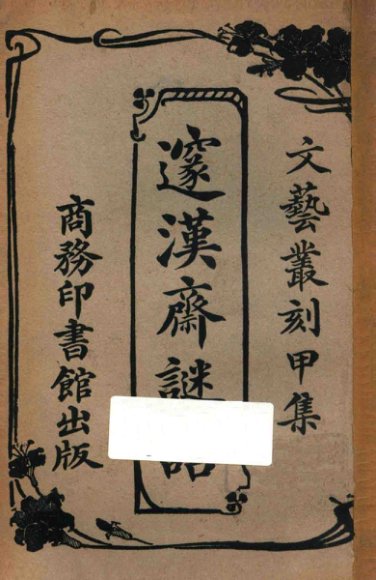 文藝叢刻甲集
邃漢齋謎話
商務印書館出版